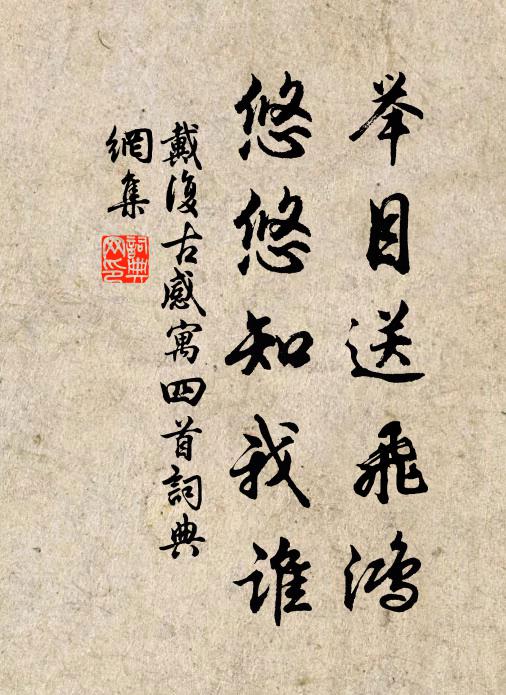 举目送飛鴻
悠悠知我誰
戴復古感寓四首詞典
網集
詞典
网印